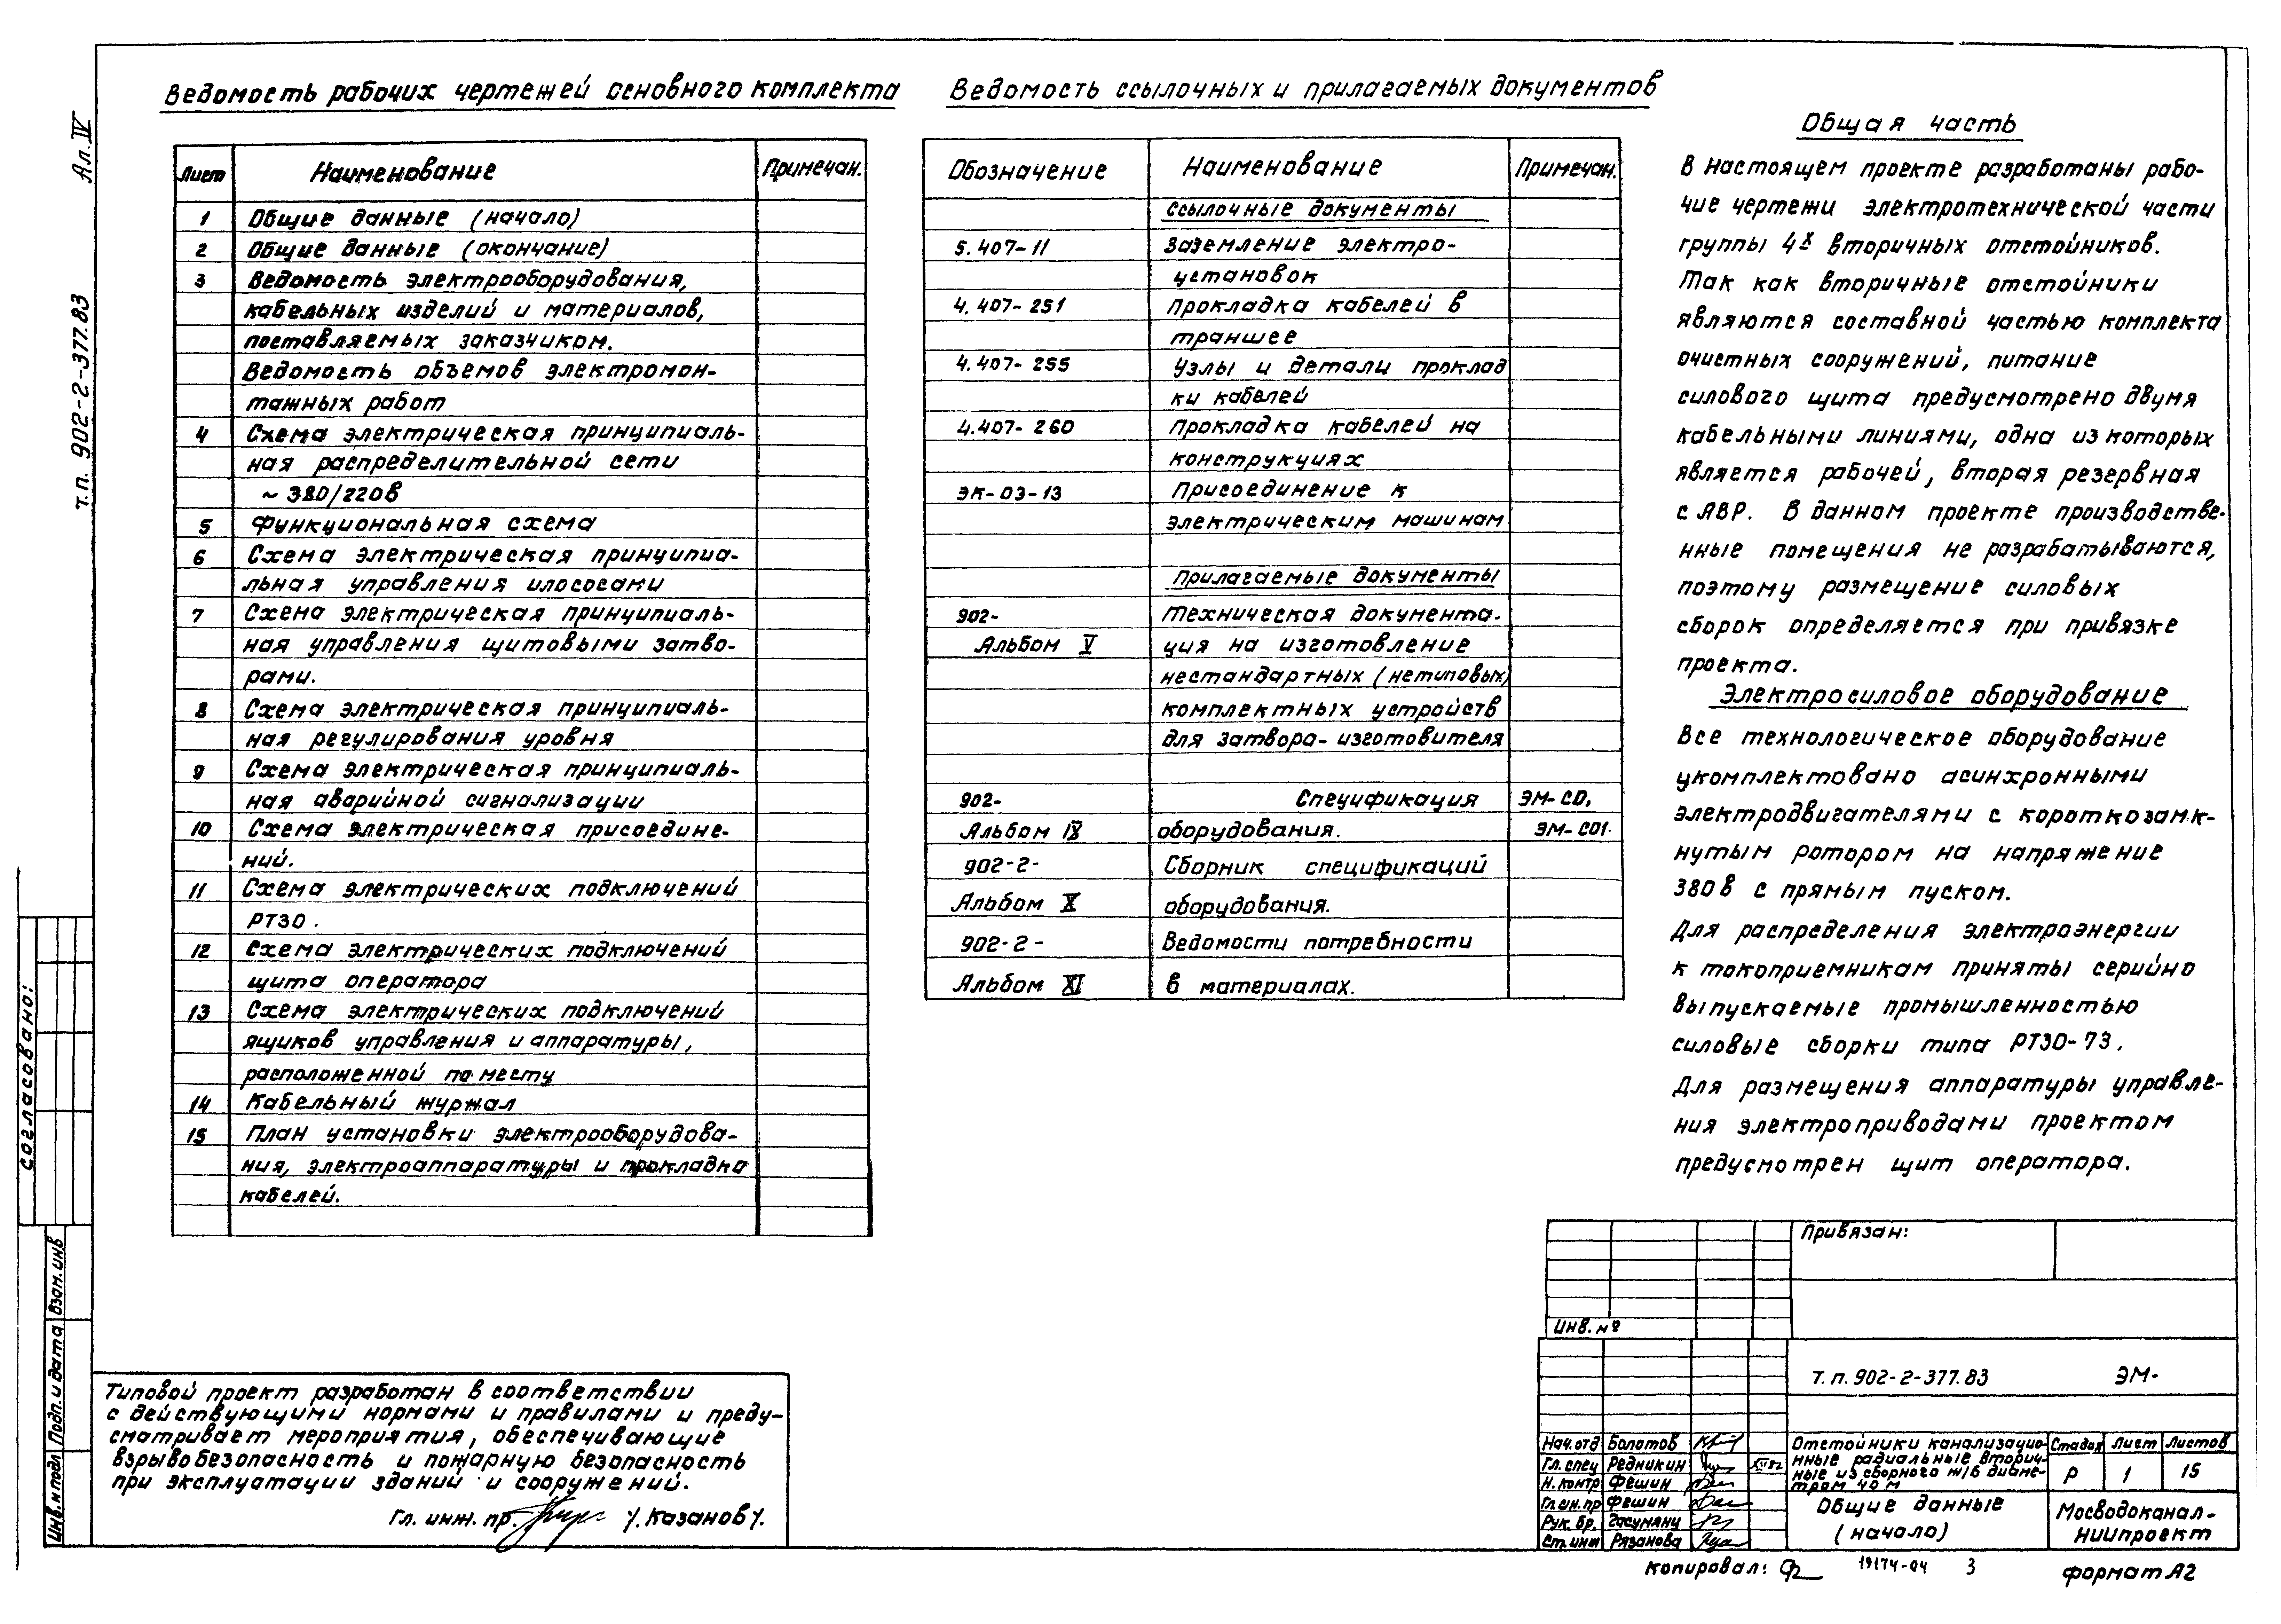 Ал. IV
т.п. 902-2-377.83
Ведомость рабочих чертежей основного комплекта
Лист Наименование Примечан.
1 Общие данные (начало)
2 Общие данные (окончание)
3 Ведомость электрооборудования,
кабельных изделий и материалов,
поставляемых заказчиком.
Ведомость объемов электромон-
тажных работ
4 Схема электрическая принципиаль-
ная распределительной сети
~ 380/220в
5 Функциональная схема
6 Схема электрическая принципиа-
льная управления илососами
7 Схема электрическая принципиаль-
ная управления щитовыми затво-
рами.
8 Схема электрическая принципиаль-
ная регулирования уровня
9 Схема электрическая принципиаль-
ная аварийной сигнализации
10 Схема электрическая присоедине-
ний.
11 Схема электрических подключений
РТЗО.
12 Схема электрических подключений
щита оператора
13 Схема электрических подключений
ящиков управления и аппаратуры,
расположенной по месту
14 Кабельный журнал
15 План установки электрооборудова-
ния, электроаппаратуры и прокладка
кабелей.
Ведомость ссылочных и прилагаемых документов
Обозначение Наименование Примечан.
Ссылочные документы
5.407-11 Заземление электро-
установок
4.407-251 Прокладка кабелей в
траншее
4.407-255 Узлы и детали проклад
ки кабелей
4.407-260 Прокладка кабелей на
конструкциях
ЭК-03-13 Присоединение к
электрическим машинам
Прилагаемые документы
902- Техническая документа-
Альбом V ция на изготовление
нестандартных (нетиповых)
комплектных устройств
для затвора-изготовителя
902- Спецификация ЭМ-СО,
Альбом IX оборудования. ЭМ-СО1.
902-2- Сборник спецификаций
Альбом X оборудования.
902-2- Ведомости потребности
Альбом XI в материалах.
Общая часть
В настоящем проекте разработаны рабо-
чие чертежи электротехнической части
группы 4х вторичных отстойников.
Так как вторичные отстойники
являются составной частью комплекта
очистных сооружений, питание
силового щита предусмотрено двумя
кабельными линиями, одна из которых
является рабочей, вторая резервная
с АВР. В данном проекте производстве-
нные помещения не разрабатываются,
поэтому размещение силовых
сборок определяется при привязке
проекта.
Электросиловое оборудование
Все технологическое оборудование
укомплектовано асинхронными
электродвигателями с короткозамк-
нутым ротором на напряжение
380в с прямым пуском.
Для распределения электроэнергии
к токоприемникам приняты серийно
выпускаемые промышленностью
силовые сборки типа РТЗО-73.
Для размещения аппаратуры управле-
ния электроприводами проектом
предусмотрен щит оператора.
Согласовано:
Взам. инв
Подп. и дата
Инв. № подл
Типовой проект разработан в соответствии
с действующими нормами и правилами и преду-
сматривает мероприятия, обеспечивающие
взрывобезопасность и пожарную безопасность
при эксплуатации зданий и сооружений.
Гл. инж. пр. /. Казанов/.
Привязан:
Инв. №
т.п. 902-2-377.83 ЭМ-
Нач. отд Болотов
Гл. спец Редникин
Н. контр Фешин
Гл. ин. пр Фешин
Рук. бр. Гасумянц
Ст. инж Рязанова
Отстойники канализацио-
нные радиальные вторич-
ные из сборного ж/б диаме-
тром 40 м
Стадия Лист Листов
Р 1 15
Общие данные
(начало)
Мосводоканал-
НИИпроект
Копировал:
19174-04 3
формат А2